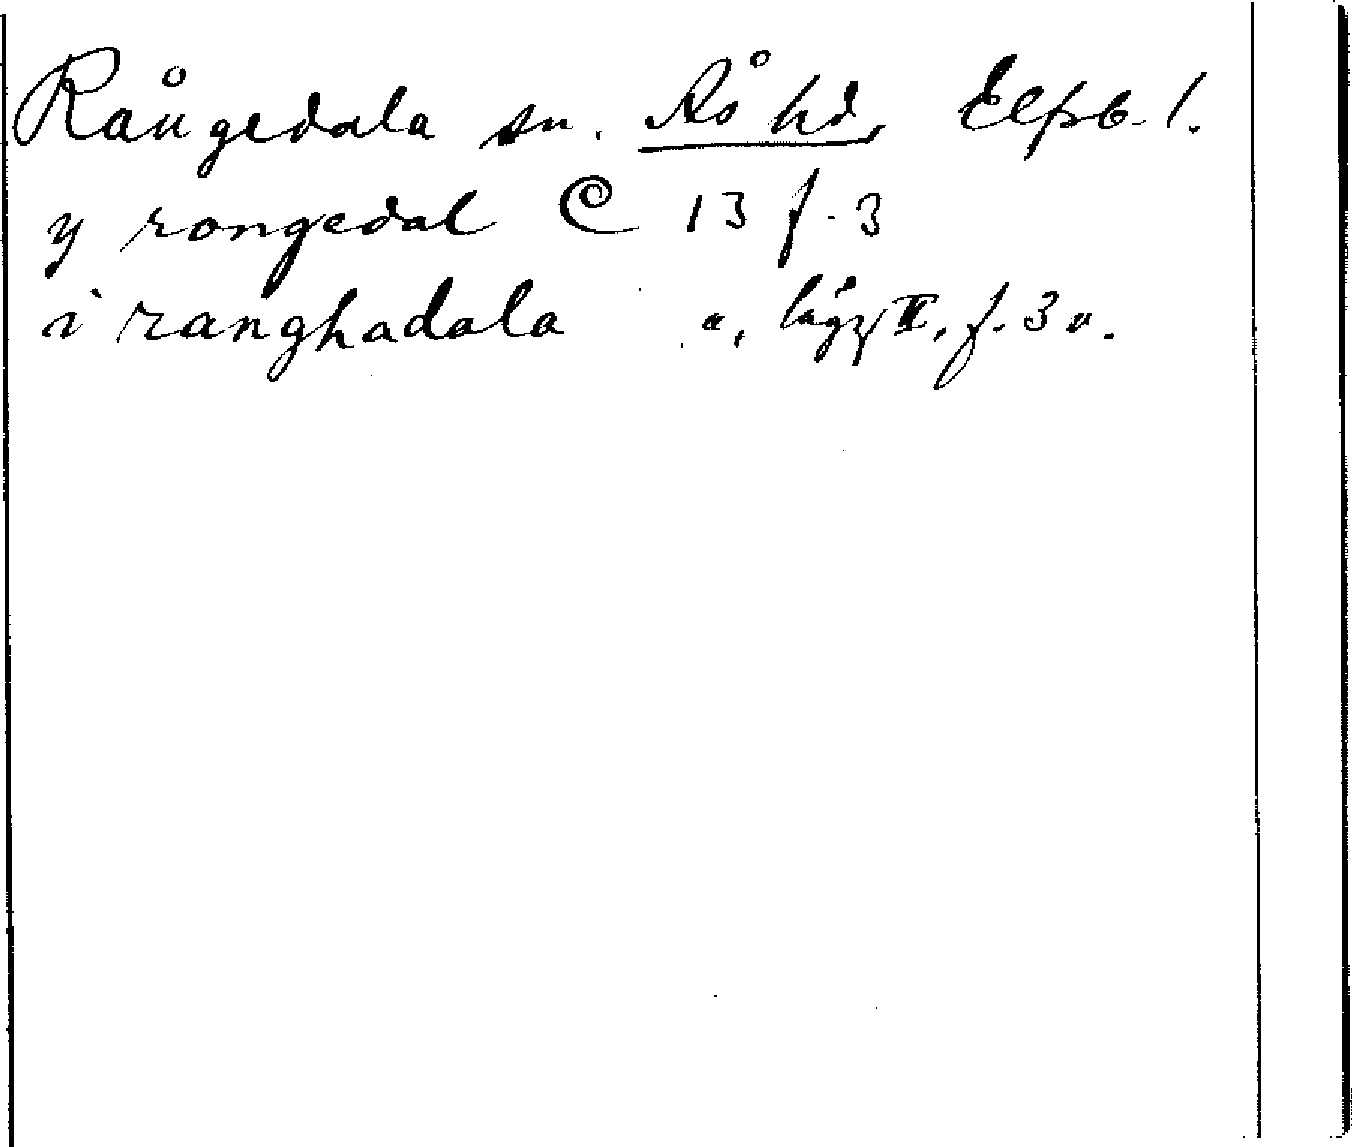 Rångedala sn. Ås hd, Elfsb. l.
y rongedal C 13 f. 3
i ranghadala ", lägg II, f. 3 v.